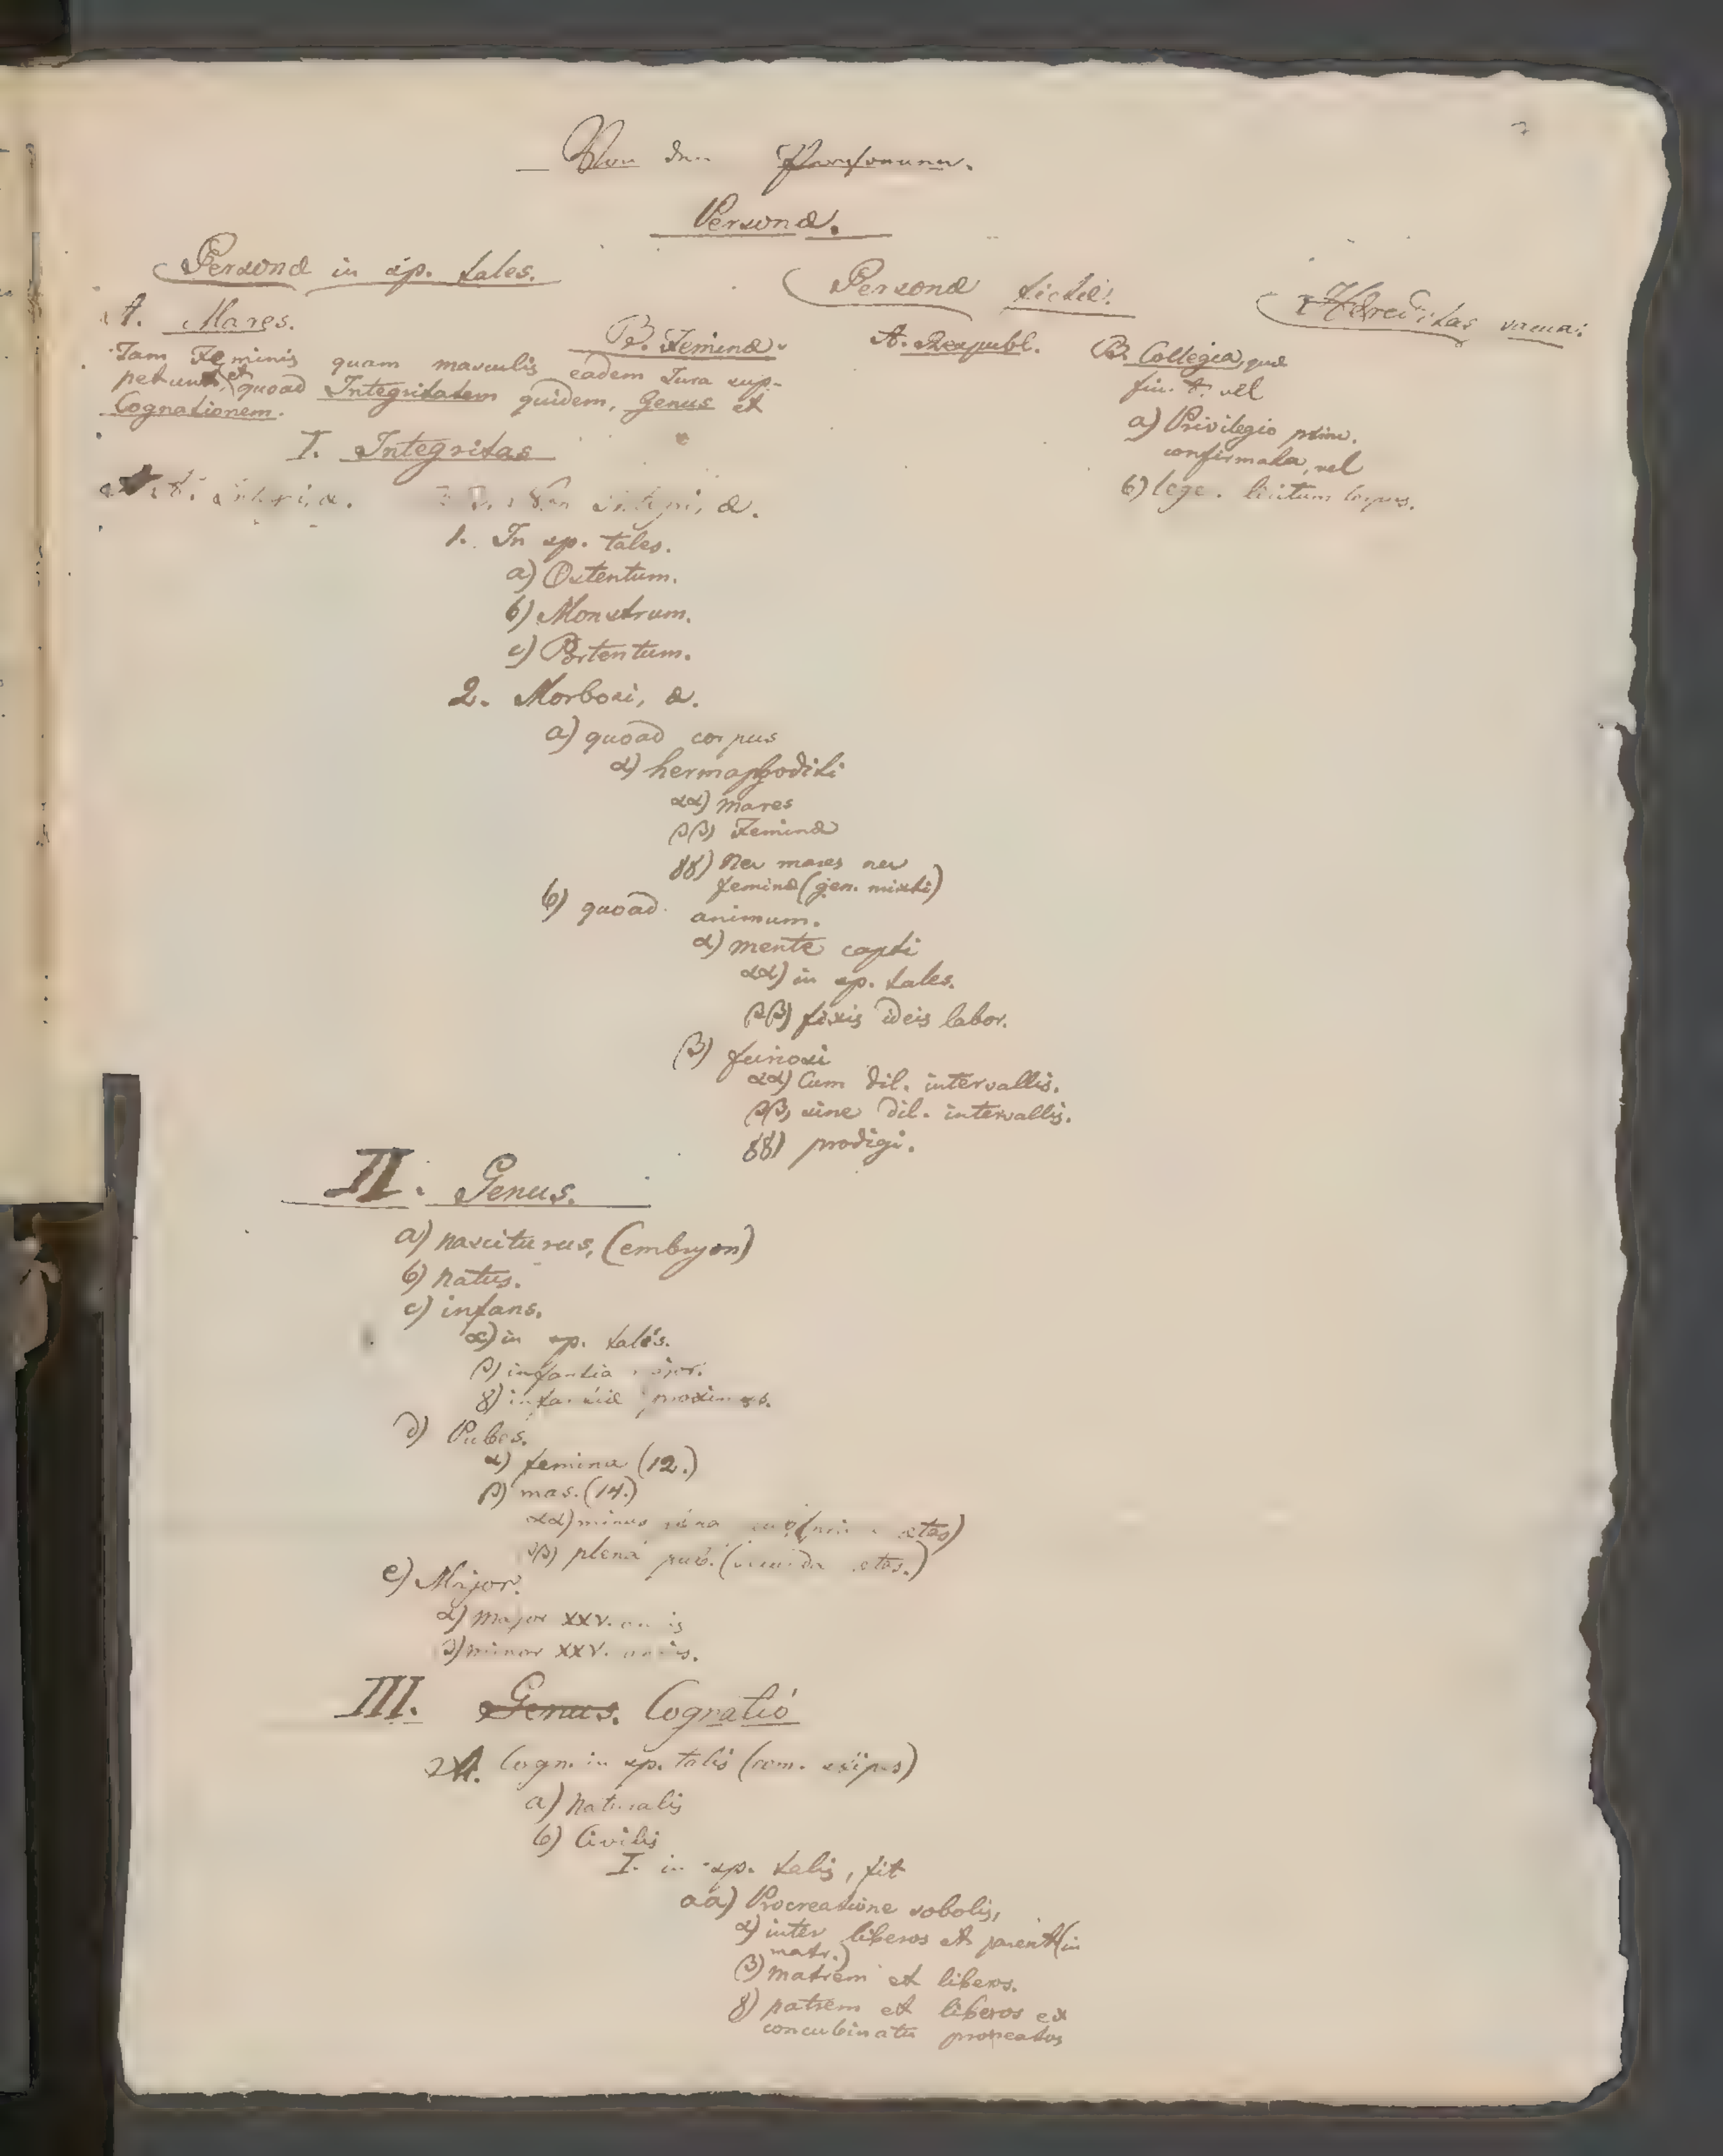 Von den Personen.
Personæ.
Personæ in sp. tales.
Personæ fictæ.
Hereditas vacua.
A. Mares.
B. Feminæ.
A. Respubl.
B. Collegia, quæ
Tam Feminis quam masculis eadem Jura sup-
petunt, et quoad Integritatem quidem, Genus et
Cognationem.
a) Privilegio prim.
confirmata, vel
b) lege. licitum corpus.
I. Integritas
1. In sp. tales.
a) Ostentum.
b) Monstrum.
c) Portentum.
2. Morbosi, æ.
a) quoad corpus
α) hermaphroditi
αα) mares
ββ) Feminæ
γγ) Nec mares nec
feminæ (gen. mixti)
b) quoad animum.
α) mente capti
αα) in sp. tales.
ββ) fixis ideis labor.
β) furiosi
αα) Cum dil. intervallis.
ββ) sine dil. intervallis.
γγ) prodigi.
II. Genus.
a) nasciturus, (embryon)
b) natus.
c) infans.
α) in sp. tales.
β) infantia major.
γ) infantiæ proximus.
d) Pubes.
α) femina (12.)
β) mas. (14.)
αα) minus ætas)
ββ) plena pub. ( ætas.)
e) Major.
α) major XXV. annis
β) minor XXV. annis.
III. Genus. Cognatió
A. Cogn. in sp. talis
a) Naturalis
b) Civilis
I. in sp. talis, fit
aa) Procreatione sobolis,
α) inter liberos et parent (in
matr.)
β) matrem et liberos.
γ) patrem et liberos ex
concubinatu procreatos